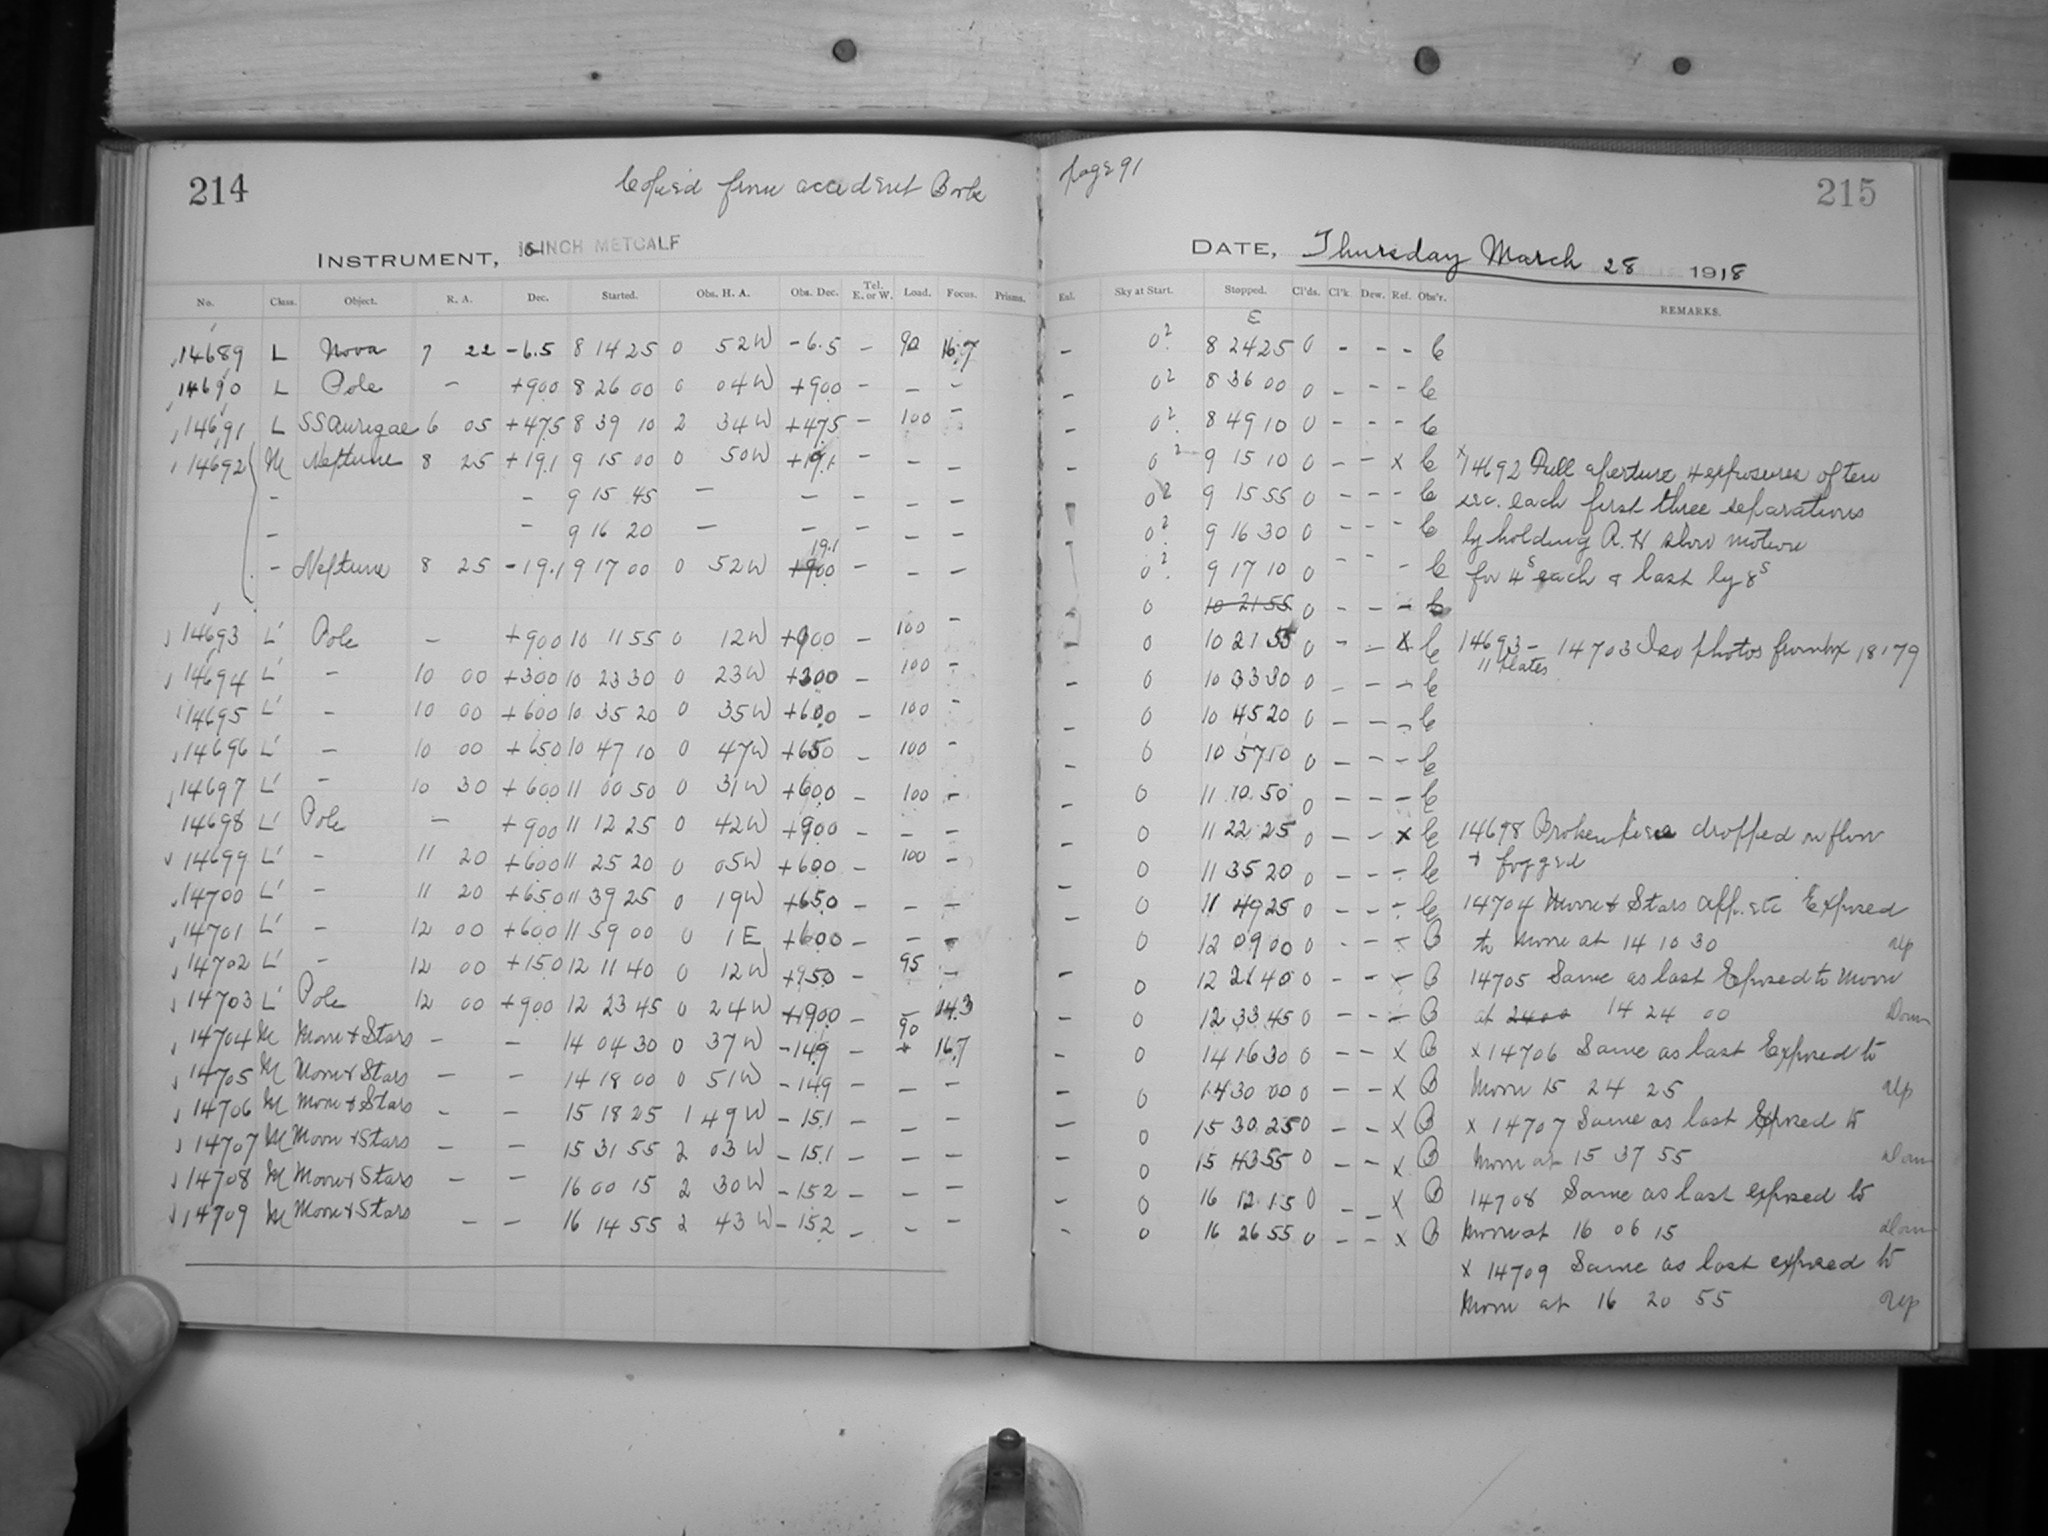 214
Copied from accident Book
INSTRUMENT, 16-INCH METCALF
No. Class. Object. R. A. Dec. Started. Obs. H. A. Obs. Dec. Tel. E. or W. Load. Focus. Prisms.
14689 L Nova 7 22 -6.5 8 14 25 0 52W -6.5 - 90 16.7
14690 L Pole - +90.0 8 26 00 0 04W +90.0 - - -
14691 L SS Aurigae 6 05 +47.5 8 39 10 2 34W +47.5 - 100 -
14692 M Neptune 8 25 +19.1 9 15 00 0 50W +19.1 - - -
- - 9 15 45 - - - - -
- - 9 16 20 - - - - -
19.1
- Neptune 8 25 -19.1 9 17 00 0 52W +900 - - -
14693 L' Pole - +90.0 10 11 55 0 12W +90.0 - 100 -
14694 L' - 10 00 +30.0 10 23 30 0 23W +30.0 - 100 -
14695 L' - 10 00 +60.0 10 35 20 0 35W +60.0 - 100 -
14696 L' - 10 00 +65.0 10 47 10 0 47W +65.0 - 100 -
14697 L' - 10 30 +60.0 11 00 50 0 31W +60.0 - 100 -
14698 L' Pole - +90.0 11 12 25 0 42W +90.0 - - -
14699 L' - 11 20 +60.0 11 25 20 0 05W +60.0 - 100 -
14700 L' - 11 20 +65.0 11 39 25 0 19W +65.0 - - -
14701 L' - 12 00 +60.0 11 59 00 0 1E +60.0 - - -
14702 L' - 12 00 +15.0 12 11 40 0 12W - 95 -
14703 L' Pole 12 00 +90.0 12 23 45 0 24W +90.0 - - 14.3
14704 M Moon & Stars - - 14 04 30 0 37W -14.9 - 90 16.7
14705 M Moon & Stars - - 14 18 00 0 51W -14.9 - - -
14706 M Moon & Stars - - 15 18 25 1 49W -15.1 - - -
14707 M Moon & Stars - - 15 31 55 2 03W -15.1 - - -
14708 M Moon & Stars - - 16 00 15 2 30W -15.2 - - -
14709 M Moon & Stars - - 16 14 55 2 43W -15.2 - - -
page 91
215
DATE, Thursday March 28 1918
Exl. Sky at Start. Stopped. Cl'ds. Cl'k. Dew. Ref. Obs'r. REMARKS.
E
- 0² 8 24 25 0 - - - C
- 0² 8 36 00 0 - - - C
- 0² 8 49 10 0 - - - C
- 0² 9 15 10 0 - - x C x14692 Full aperture 4 exposures of ten
0² 9 15 55 0 - - - C sec. each first three separations
0² 9 16 30 0 - - - C by holding R.H slow motion
0² 9 17 10 0 - - - C for 4ˢ each & last by 8ˢ
- 0 10 21 55 0 - - - C
- 0 10 21 55 0 - - x C 14693 - 14703 Iso photos from bx 18179
11 Plates
- 0 10 33 30 0 - - - C
- 0 10 45 20 0 - - - C
- 0 10 57 10 0 - - - C
- 0 11 10 50 0 - - - C
- 0 11 22 25 0 - - x C 14698 Broken piece dropped on floor
& fogged
- 0 11 35 20 0 - - - C
- 0 11 49 25 0 - - - C 14704 Moon & Stars app. etc Exposed
0 12 09 00 0 - - - B to Moon at 14 10 30 up
- 0 12 21 40 0 - - - B 14705 Same as last Exposed to Moon
- 0 12 33 45 0 - - - B at 2400 14 24 00 Down
- 0 14 16 30 0 - - x B x 14706 Same as last Exposed to
- 0 14 30 00 0 - - x B Moon 15 24 25 up
- 0 15 30 25 0 - - x B x 14707 Same as last Exposed to
- 0 15 43 55 0 - - x B Moon at 15 37 55 down
- 0 16 12 15 0 - - x B 14708 Same as last exposed to
- 0 16 26 55 0 - - x B Moon at 16 06 15 down
x 14709 Same as last exposed to
Moon at 16 20 55 up